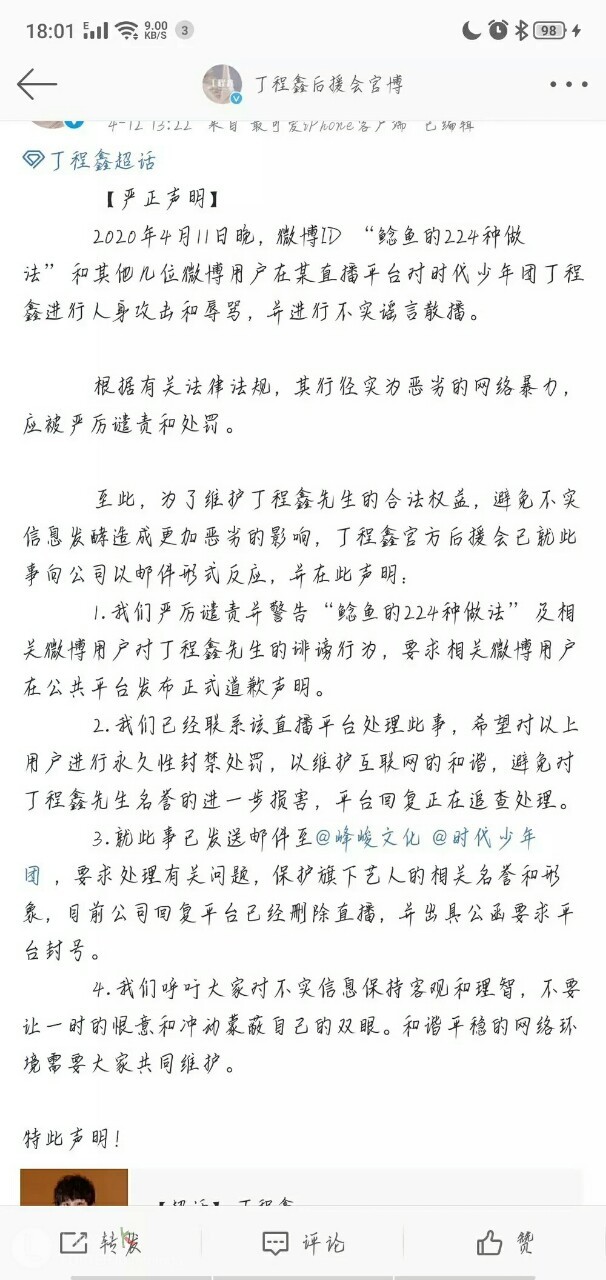 18:01 E 9.00 KB/S 3 98
丁程鑫后援会官博
4-12 13:22 来自 最可爱iPhone客户端 已编辑
丁程鑫超话
【严正声明】
2020年4月11日晚，微博ID “鲶鱼的224种做
法”和其他几位微博用户在某直播平台对时代少年团丁程
鑫进行人身攻击和辱骂，并进行不实谣言散播。
根据有关法律法规，其行径实为恶劣的网络暴力，
应被严厉谴责和处罚。
至此，为了维护丁程鑫先生的合法权益，避免不实
信息发酵造成更加恶劣的影响，丁程鑫官方后援会已就此
事向公司以邮件形式反应，并在此声明：
1.我们严厉谴责并警告“鲶鱼的224种做法”及相
关微博用户对丁程鑫先生的诽谤行为，要求相关微博用户
在公共平台发布正式道歉声明。
2.我们已经联系该直播平台处理此事，希望对以上
用户进行永久性封禁处罚，以维护互联网的和谐，避免对
丁程鑫先生名誉的进一步损害，平台回复正在追查处理。
3.就此事已发送邮件至@峰峻文化 @时代少年
团 ，要求处理有关问题，保护旗下艺人的相关名誉和形
象，目前公司回复平台已经删除直播，并出具公函要求平
台封号。
4.我们呼吁大家对不实信息保持客观和理智，不要
让一时的恨意和冲动蒙蔽自己的双眼。和谐平稳的网络环
境需要大家共同维护。
特此声明！
【超话】丁程鑫
转发 评论 赞